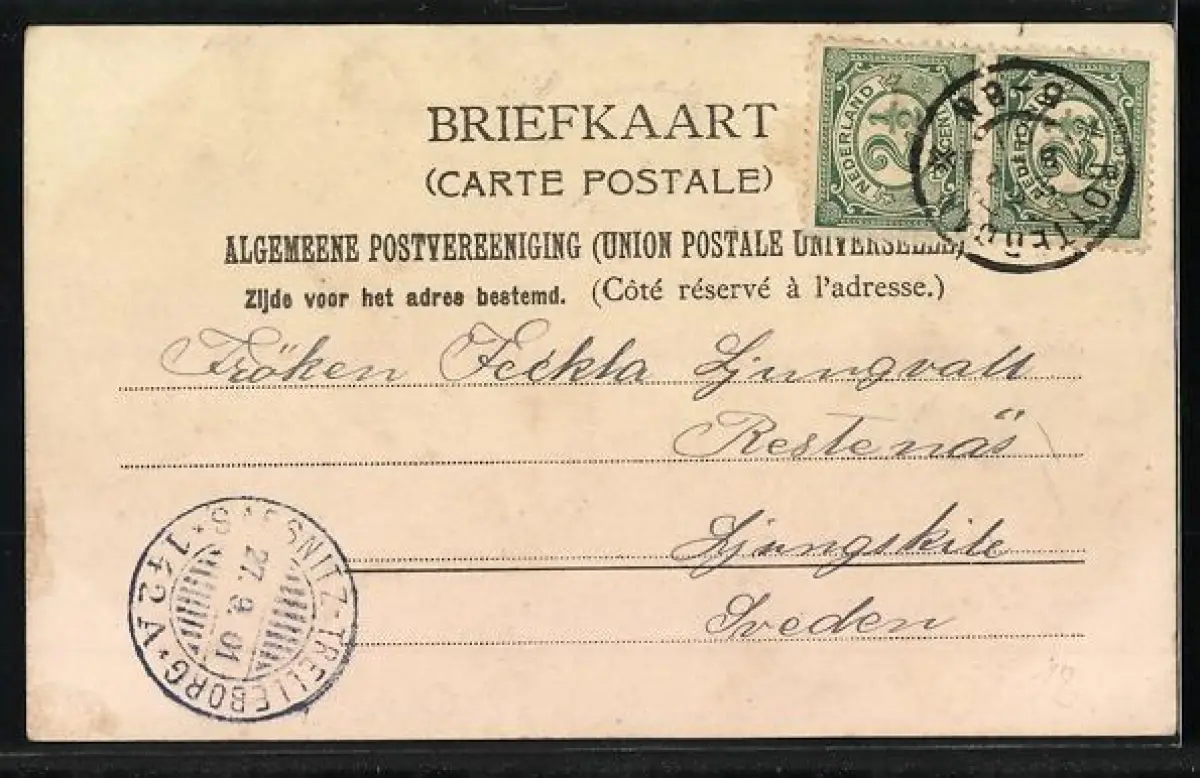 BRIEFKAART
(CARTE POSTALE)
ALGEMEENE POSTVEREENIGING (UNION POSTALE UNIVERSELLE)
Zijde voor het adres bestemd. (Côté réservé à l'adresse.)
NEDERLAND 2½ CENT
NEDERLAND 2½ CENT
ROTTERDAM
8-9N
Fröken Teckla Ljungvall
Restenäs
Ljungskile
Sveden
SASSNITZ-TRELLEBORG
27.9.01
142 A